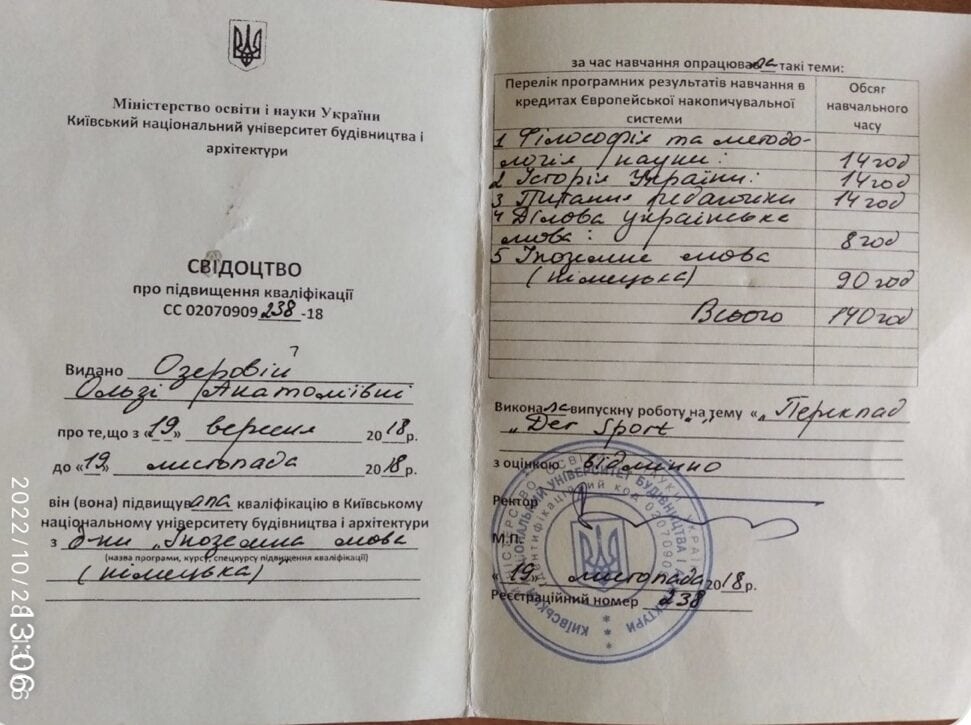 Міністерство освіти і науки України
Київський національний університет будівництва і
архітектури
СВІДОЦТВО
про підвищення кваліфікації
СС 02070909 238 -18
Видано Озеровій
Ользі Анатоліївні
про те,що з «19» вересня 2018р.
до «19» листопада 2018р.
він (вона) підвищувала кваліфікацію в Київському
національному університету будівництва і архітектури
з д-ни „Іноземна мова
(назва програми, курсу, спецкурсу підвищення кваліфікації)
(німецька)"
за час навчання опрацювала такі теми:
Перелік програмних результатів навчання в
кредитах Європейської накопичувальної
системи
Обсяг
навчального
часу
1 Філософія та методо-
логія науки: 14 год
2 Історія України: 14 год
3 Питання педагогіки 14 год
4 Ділова українська
мова: 8 год
5 Іноземна мова
(німецька) 90 год
Всього 140 год
Виконала випускну роботу на тему «„Переклад
„Der Sport"»
з оцінкою відмінно
Ректор
М.П.
«19» листопада 2018р.
Реєстраційний номер 238
МІНІСТЕРСТВО ОСВІТИ І НАУКИ УКРАЇНИ
КИЇВСЬКИЙ НАЦІОНАЛЬНИЙ УНІВЕРСИТЕТ БУДІВНИЦТВА І АРХІТЕКТУРИ
Ідентифікаційний код 02070909
2022/10/28 13:06